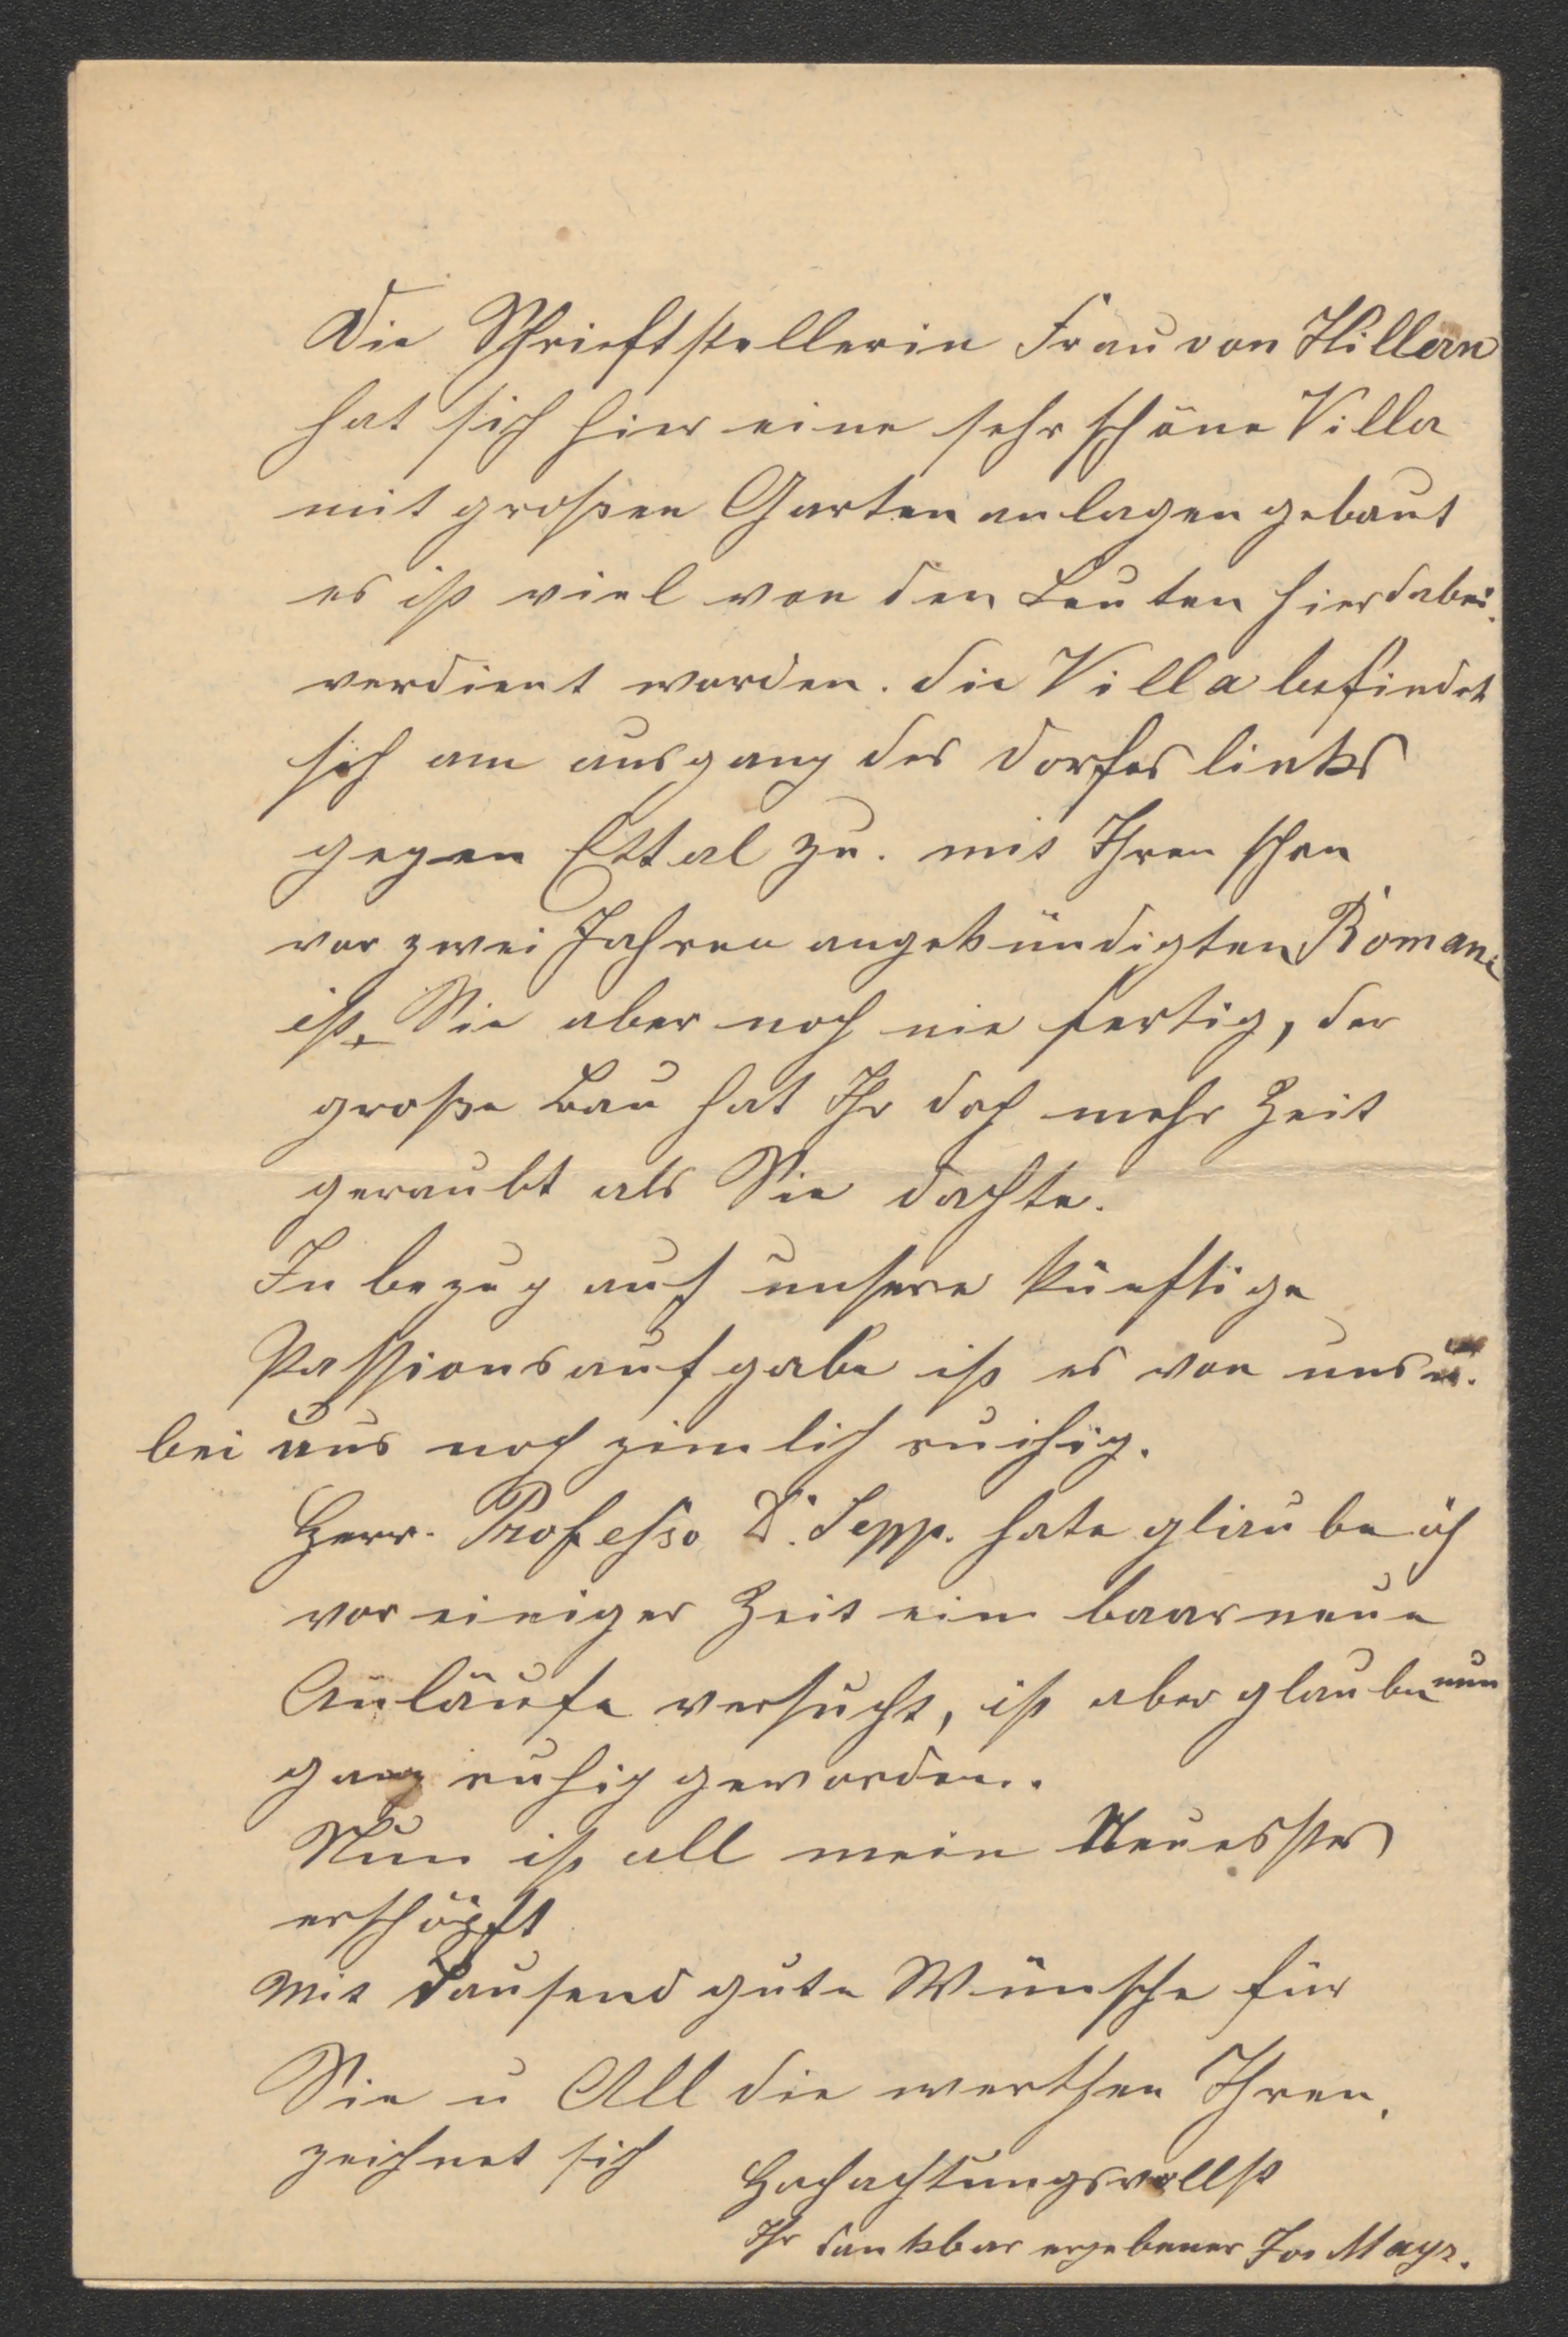 Die Schrieftstellerin Frau von Hillern
hat sich hier eine sehr schöne Villa
mit großen Garten anlagen gebaut
es ist viel von den Leuten hier dabei
verdient worden. die Villa befindet
sich am ausgang des Dorfes links
gegen Ettal zu. mit Ihren schon
vor zwei Jahren angekündigten Roman
ist Sie aber noch nie fertig, der
große Bau hat Ihr doch mehr Zeit
geraubt als Sie dachte.
In bezug auf unsere künftige
Passionsaufgabe ist es von uns u.
bei uns noch zimlich ruihig.
Herr. Professo Dr. Sepp. hate gliaube ich
vor einiger Zeit ein baar neue
Anläufe versucht, ist aber glaube nun
ganz ruhig geworden.
Nun ist all mein Neuesstes
erschöpft
Mit Tausend gute Wünsche für
Sie u All die werthen Ihren,
zeichnet sich
Hochachtungsvollst
Ihr dankbar ergebener Jos Mayr.